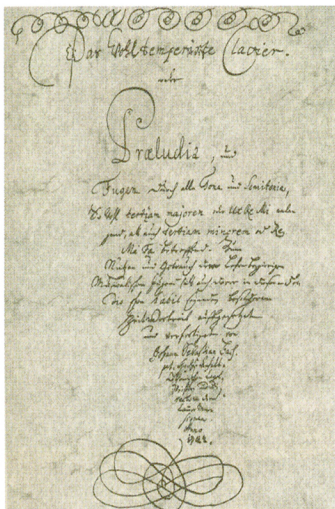 Das Wohltemperirte Clavier.
oder
Præludia, und
Fugen durch alle Tone und Semitonia,
So wohl tertiam majorem oder Ut Re Mi anlan-
gend, als auch tertiam minorem oder Re
Mi Fa betreffend. Zum
Nutzen und Gebrauch der Lehrbegierigen
Musicalischen Jugend als auch derer in diesem
schon habil seyenden besonderem
ZeitVertreib auffgesetzet
und verfertiget von
Johann Sebastian Bach.
Anno
1722.